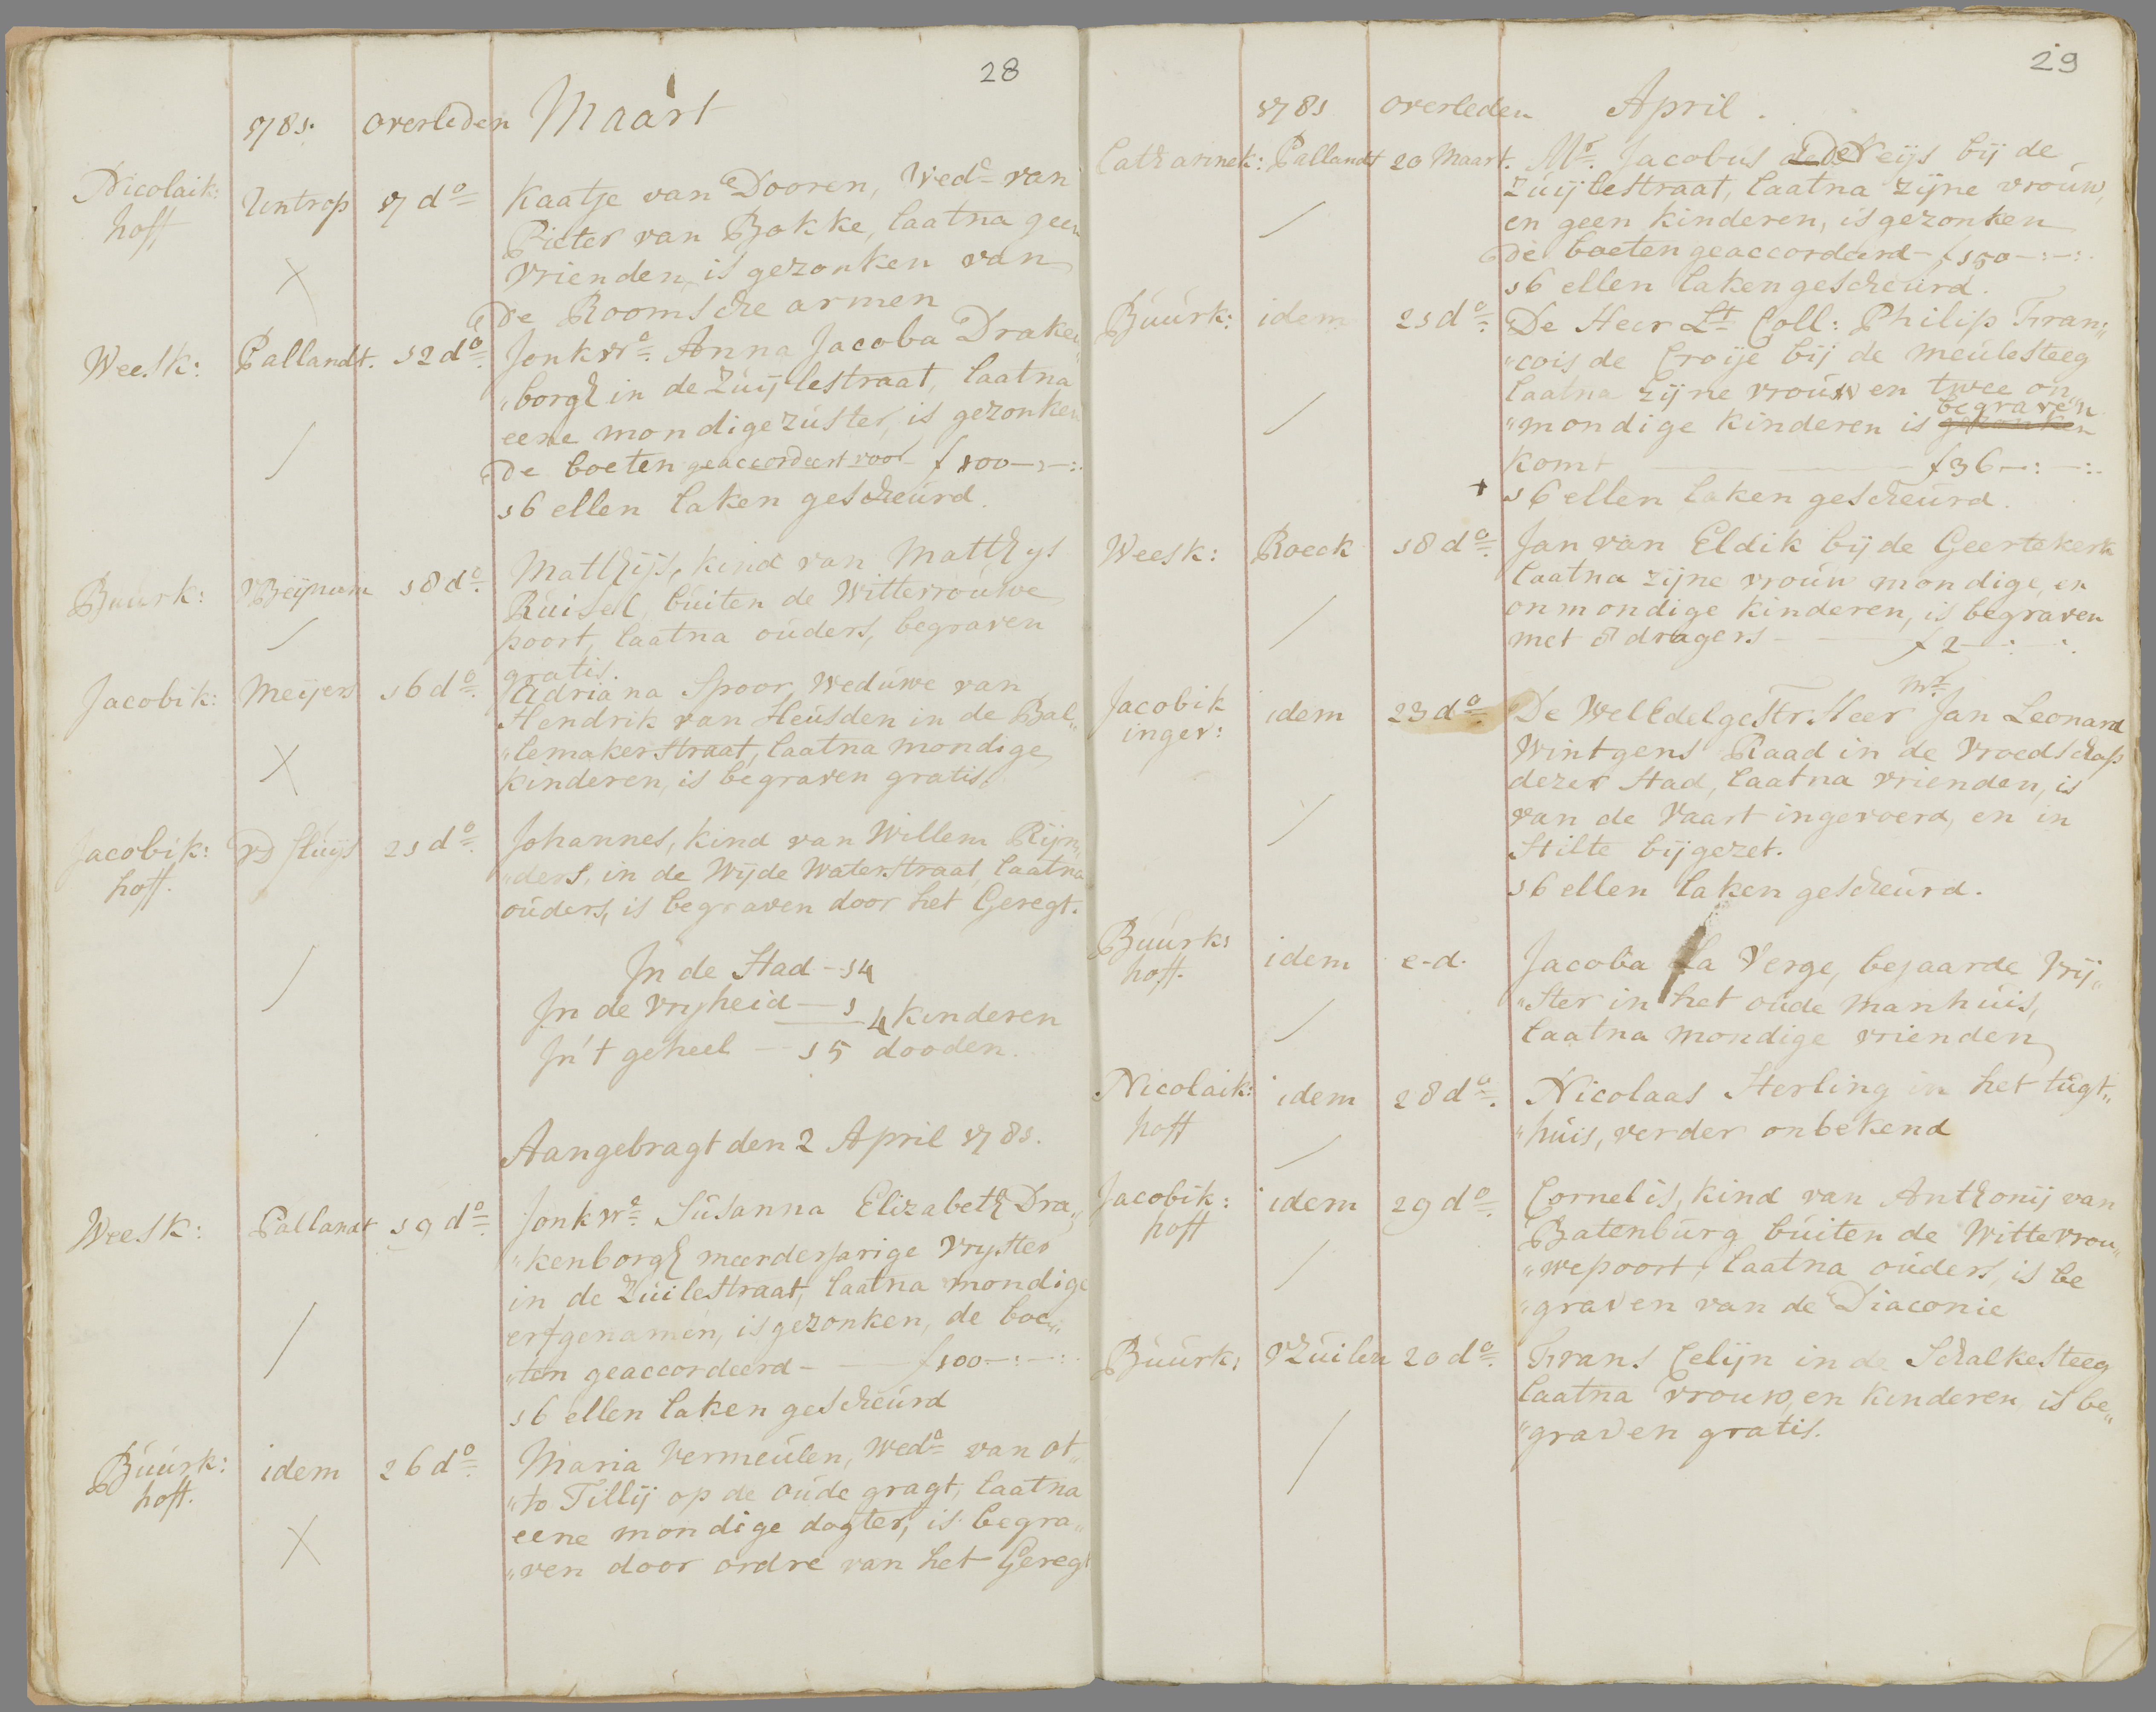 28
1781. overleden Maart
Nicolaik: hoff Untrop 17 do Kaatje van Dooren, Wede van
Pieter van Bokke, laatna geen
vrienden, is gezonken van
De Roomsche armen
Weesk: Pallandt. 12 do. Jonkvre. Anna Jacoba Draken„
„borgh in de Zuijlestraat, laatna
eene mondige zuster, is gezonken
De boeten geaccordeert voor f 100-:-:
16 ellen laken gescheurd.
Buurk: VBeijnum 18 do. Matthijs, kind van Matthys
Ruisel, buiten de Wittevrouwe
poort, laatna ouders, begraven
gratis.
Jacobik: Meijers 16 do. Adriana Spoor, Weduwe van
Hendrik van Heusden in de Bal„
„lemakerstraat, laatna mondige
kinderen, is begraven gratis.
Jacobik: hoff. VD Sluijs 21 do. Johannes, kind van Willem Rijn„
„ders, in de Wijde Waterstraat, laatna
ouders, is begraven door het Geregt.
In de Stad - 14
In de Vryheid - 1 4 kinderen
In 't geheel - 15 dooden.
Aangebragt den 2 April 1781.
Weesk: Pallandt 19 do. Jonkvre Susanna Elizabeth Dra„
„kenborgh meerderjarige Vryster
in de Zuilestraat, laatna mondige
erfgenamen, is gezonken, de boe„
„ten geaccordeerd - f 100-:-:
16 ellen laken gescheurd
Buurk: hoff. idem 26 do. Maria Vermeulen, Wede van Ot„
„to Tillij op de oude gragt, laatna
eene mondige dogter, is begra„
„ven door ordre van het Geregt
29
1781 overleden April.
Catharinek: Pallandt 20 Maart. Mr. Jacobus De Neijs bij de
Zuijlestraat, laatna zijne vrouw,
en geen kinderen, is gezonken
De boeten geaccordeerd - f 150-:-:
16 ellen laken gescheurd.
Buurk: idem 21 do. De Heer Lt Coll: Philip Fran„
„cois de Croije bij de meulesteeg
laatna zijne vrouw en twee on„
begraven
„mondige kinderen is gezonken
komt f 36-:-:
+ 16 ellen laken gescheurd.
Weesk: Roeck 18 do. Jan van Eldik bij de Geertekerk
laatna zijne vrouw mondige, en
onmondige kinderen, is begraven
met 8 dragers - f 2-:-:
Mr.
Jacobik inger: idem 23 do De WelEdelgestr. Heer Jan Leonard
Wintgens Raad in de Vroedschap
dezer Stad, laatna vrienden, is
van de Vaart ingevoerd, en in
Stilte bijgezet.
16 ellen laken gescheurd.
Buurk: hoff. idem e-d. Jacoba La Verge, bejaarde Vrij„
„ster in het oude Manhuis,
laatna mondige vrienden
Nicolaik: hoff idem 28 do. Nicolaas Sterling in het tugt„
„huis, verder onbekend
Jacobik: hoff idem 29 do. Cornelis, kind van Anthonij van
Batenburg buiten de Wittevrou„
„wepoort, laatna ouders, is be
„graven van de Diaconie
Buurk: VZuilen 20 do. Frans Celijn in de Schalkesteeg
laatna vrouw, en kinderen is be„
„graven gratis.